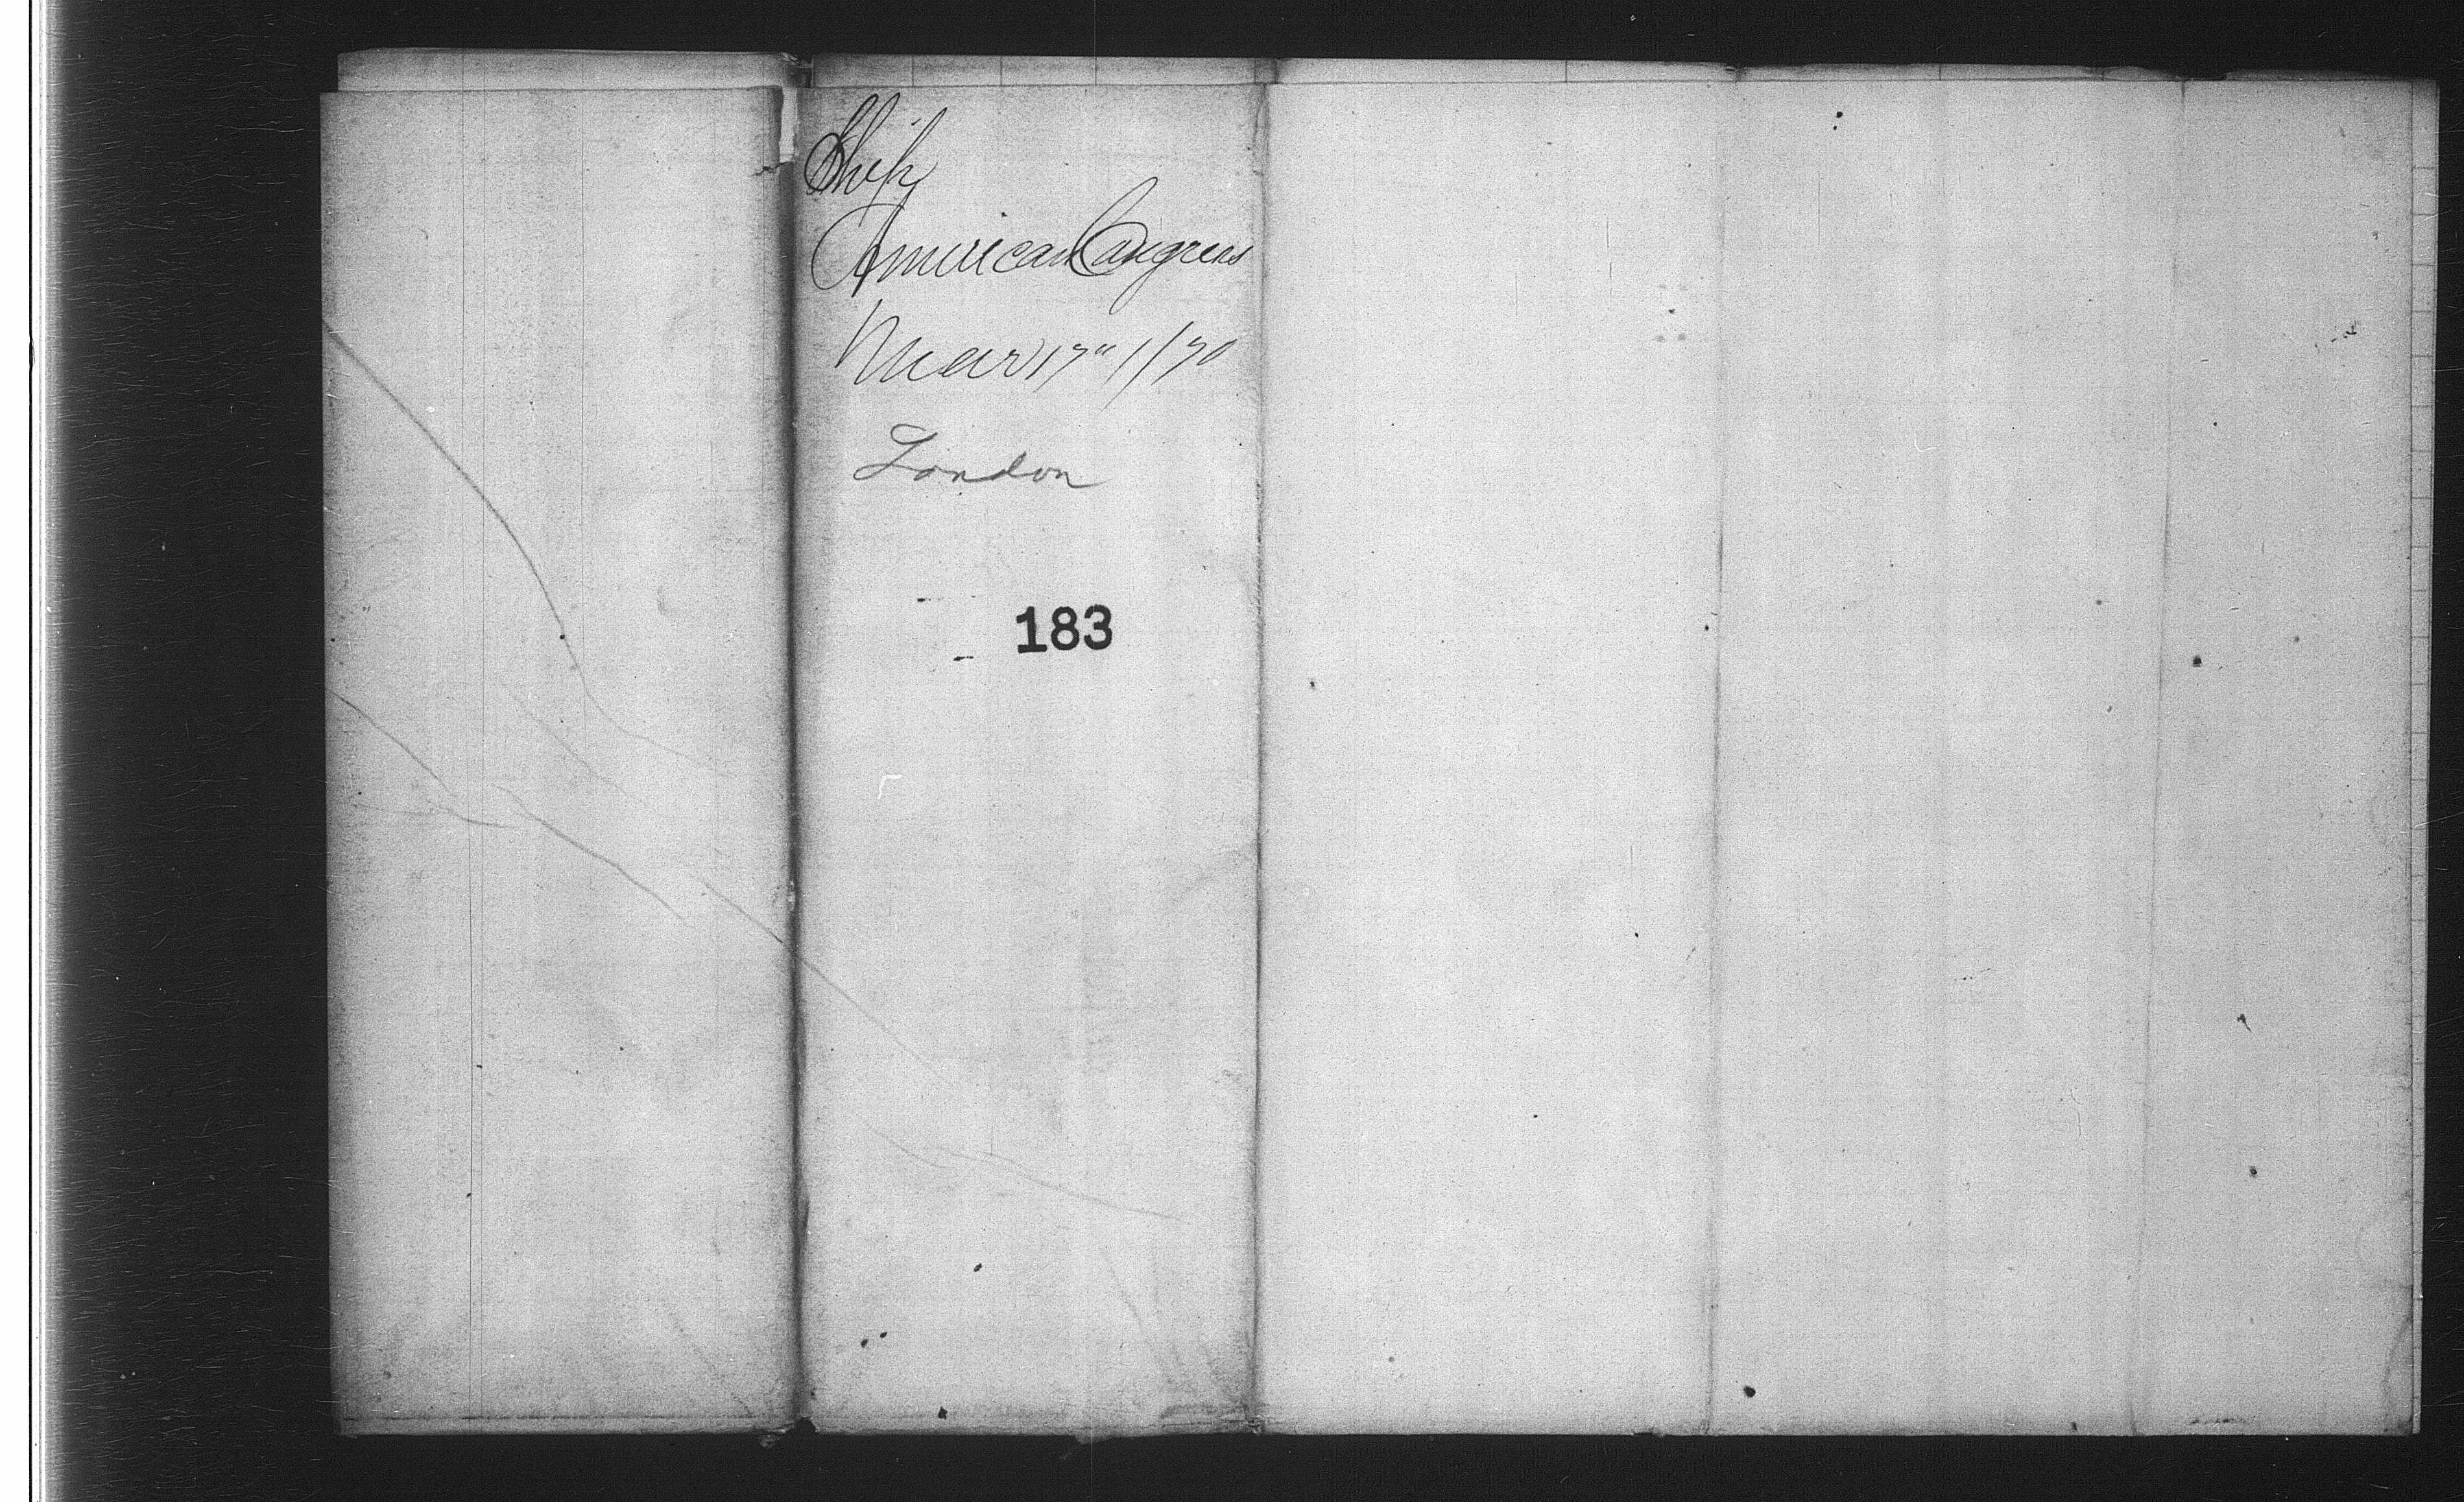 Ship
American Congress
Mar 17" 1/70
London
183